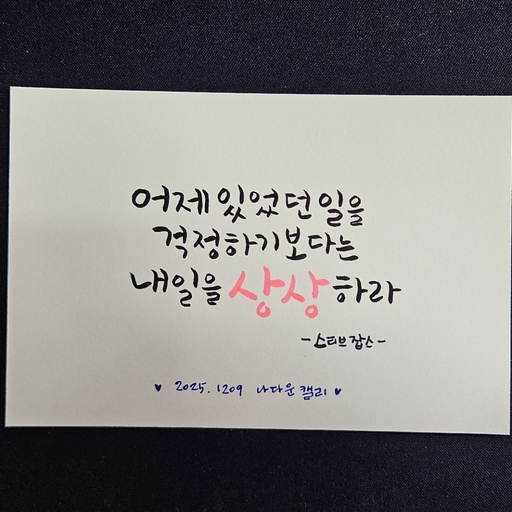 어제 있었던 일을
걱정하기보다는
내일을 상상하라
-스티브 잡스-
♥ 2025. 1209 나다운 캘리 ♥